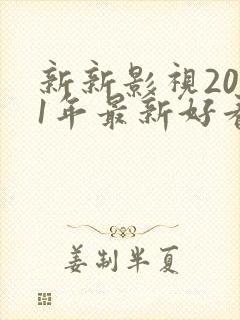 新新影視20
1年最新好看
姜制半夏